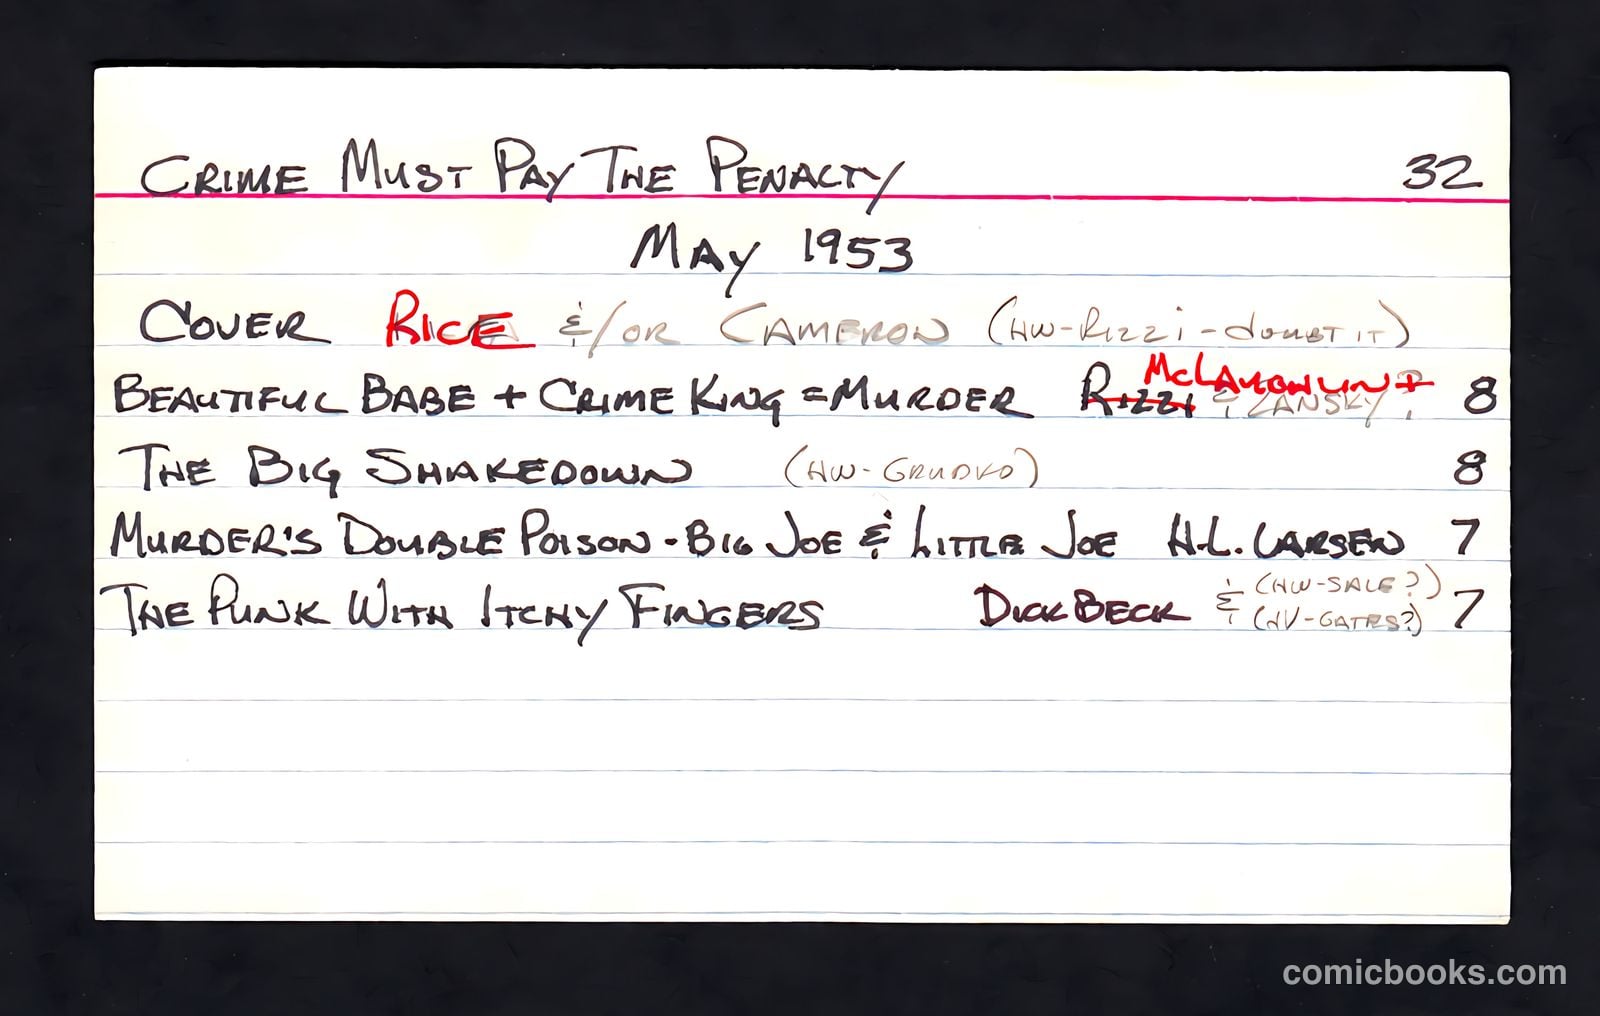 CRIME MUST PAY THE PENALTY 32
MAY 1953
COVER RICE &/OR CAMERON (HW-RIZZI-DOUBT IT)
BEAUTIFUL BABE + CRIME KING = MURDER RIZZI McLAUGHLIN + & LANSKY? 8
THE BIG SHAKEDOWN (HW-GRUDKO) 8
MURDER'S DOUBLE POISON - BIG JOE & LITTLE JOE H.L. LARSEN 7
THE PUNK WITH ITCHY FINGERS DICK BECK & (HW-SALE?) (HV-GATES?) 7
comicbooks.com